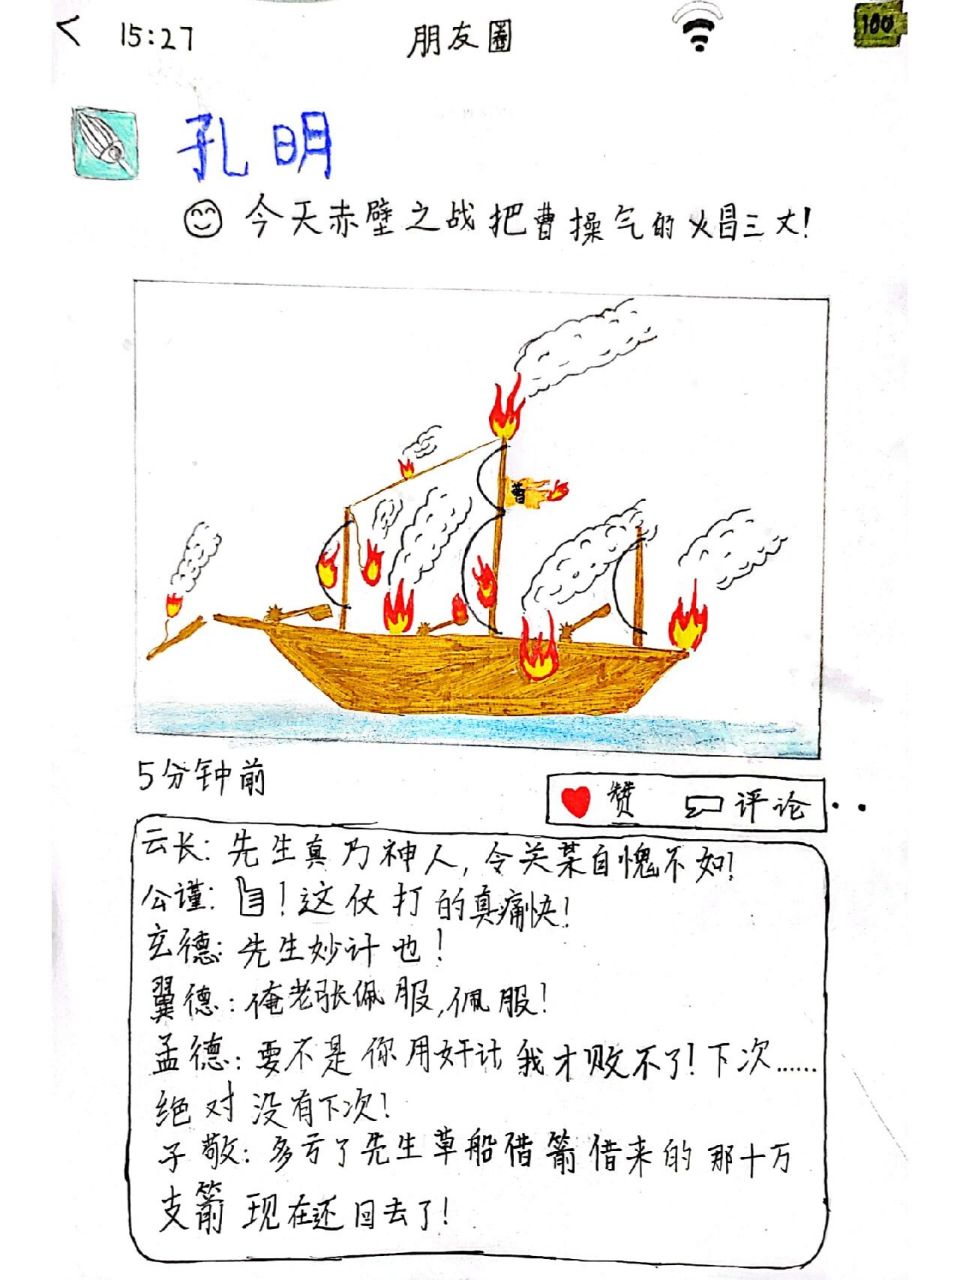 < 15:27 朋友圈 100
孔明
今天赤壁之战把曹操气的火冒三丈!
曹
5分钟前
赞 评论
云长: 先生真乃神人, 令关某自愧不如!
公谨: ! 这仗打的真痛快!
玄德: 先生妙计也!
翼德: 俺老张佩服, 佩服!
孟德: 要不是你用奸计我才败不了! 下次……
绝对没有下次!
子敬: 多亏了先生草船借箭借来的那十万
支箭现在还回去了!